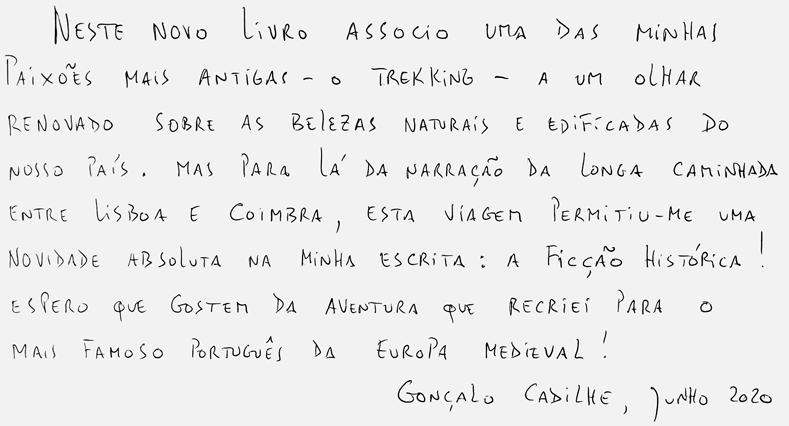 NESTE NOVO LIVRO ASSOCIO UMA DAS MINHAS
PAIXÕES MAIS ANTIGAS - O TREKKING - A UM OLHAR
RENOVADO SOBRE AS BELEZAS NATURAIS E EDIFICADAS DO
NOSSO PAÍS. MAS PARA LÁ DA NARRAÇÃO DA LONGA CAMINHADA
ENTRE LISBOA E COIMBRA, ESTA VIAGEM PERMITIU-ME UMA
NOVIDADE ABSOLUTA NA MINHA ESCRITA: A FICÇÃO HISTÓRICA!
ESPERO QUE GOSTEM DA AVENTURA QUE RECRIEI PARA O
MAIS FAMOSO PORTUGUÊS DA EUROPA MEDIEVAL!
GONÇALO CADILHE, JUNHO 2020